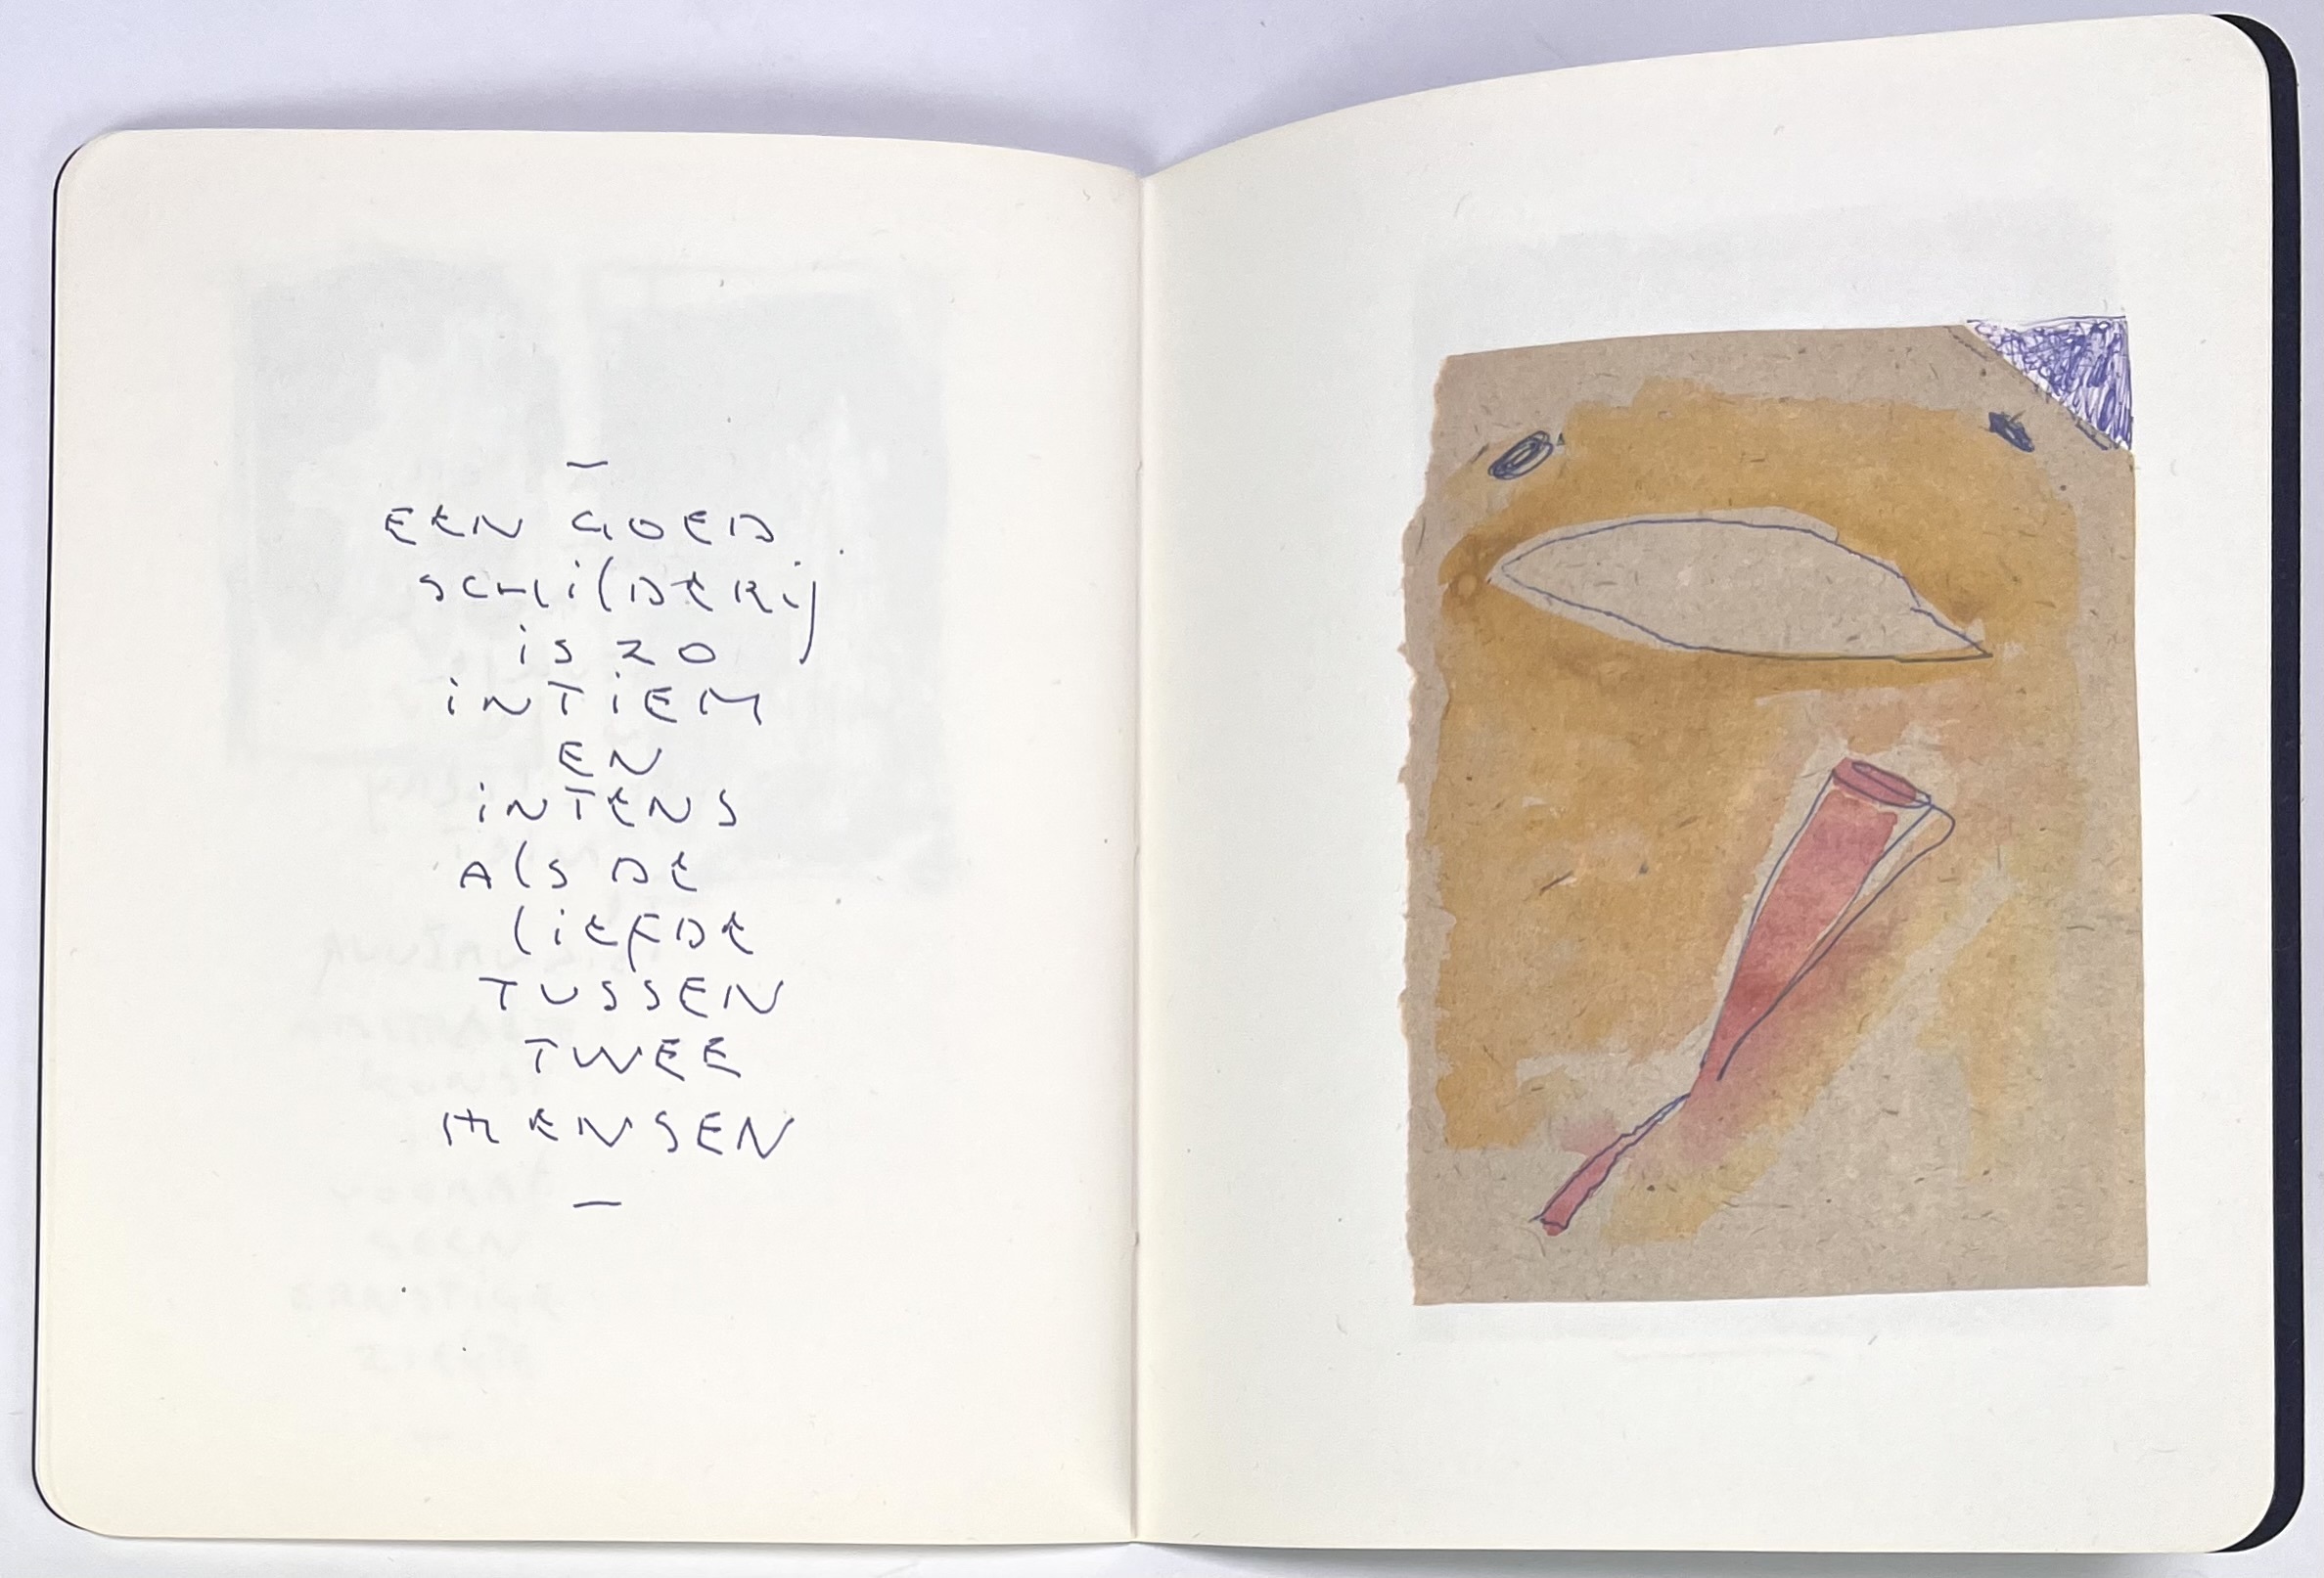 —
EEN GOED
SCHILDERIJ
IS ZO
INTIEM
EN
INTENS
ALS DE
LIEFDE
TUSSEN
TWEE
MENSEN
—